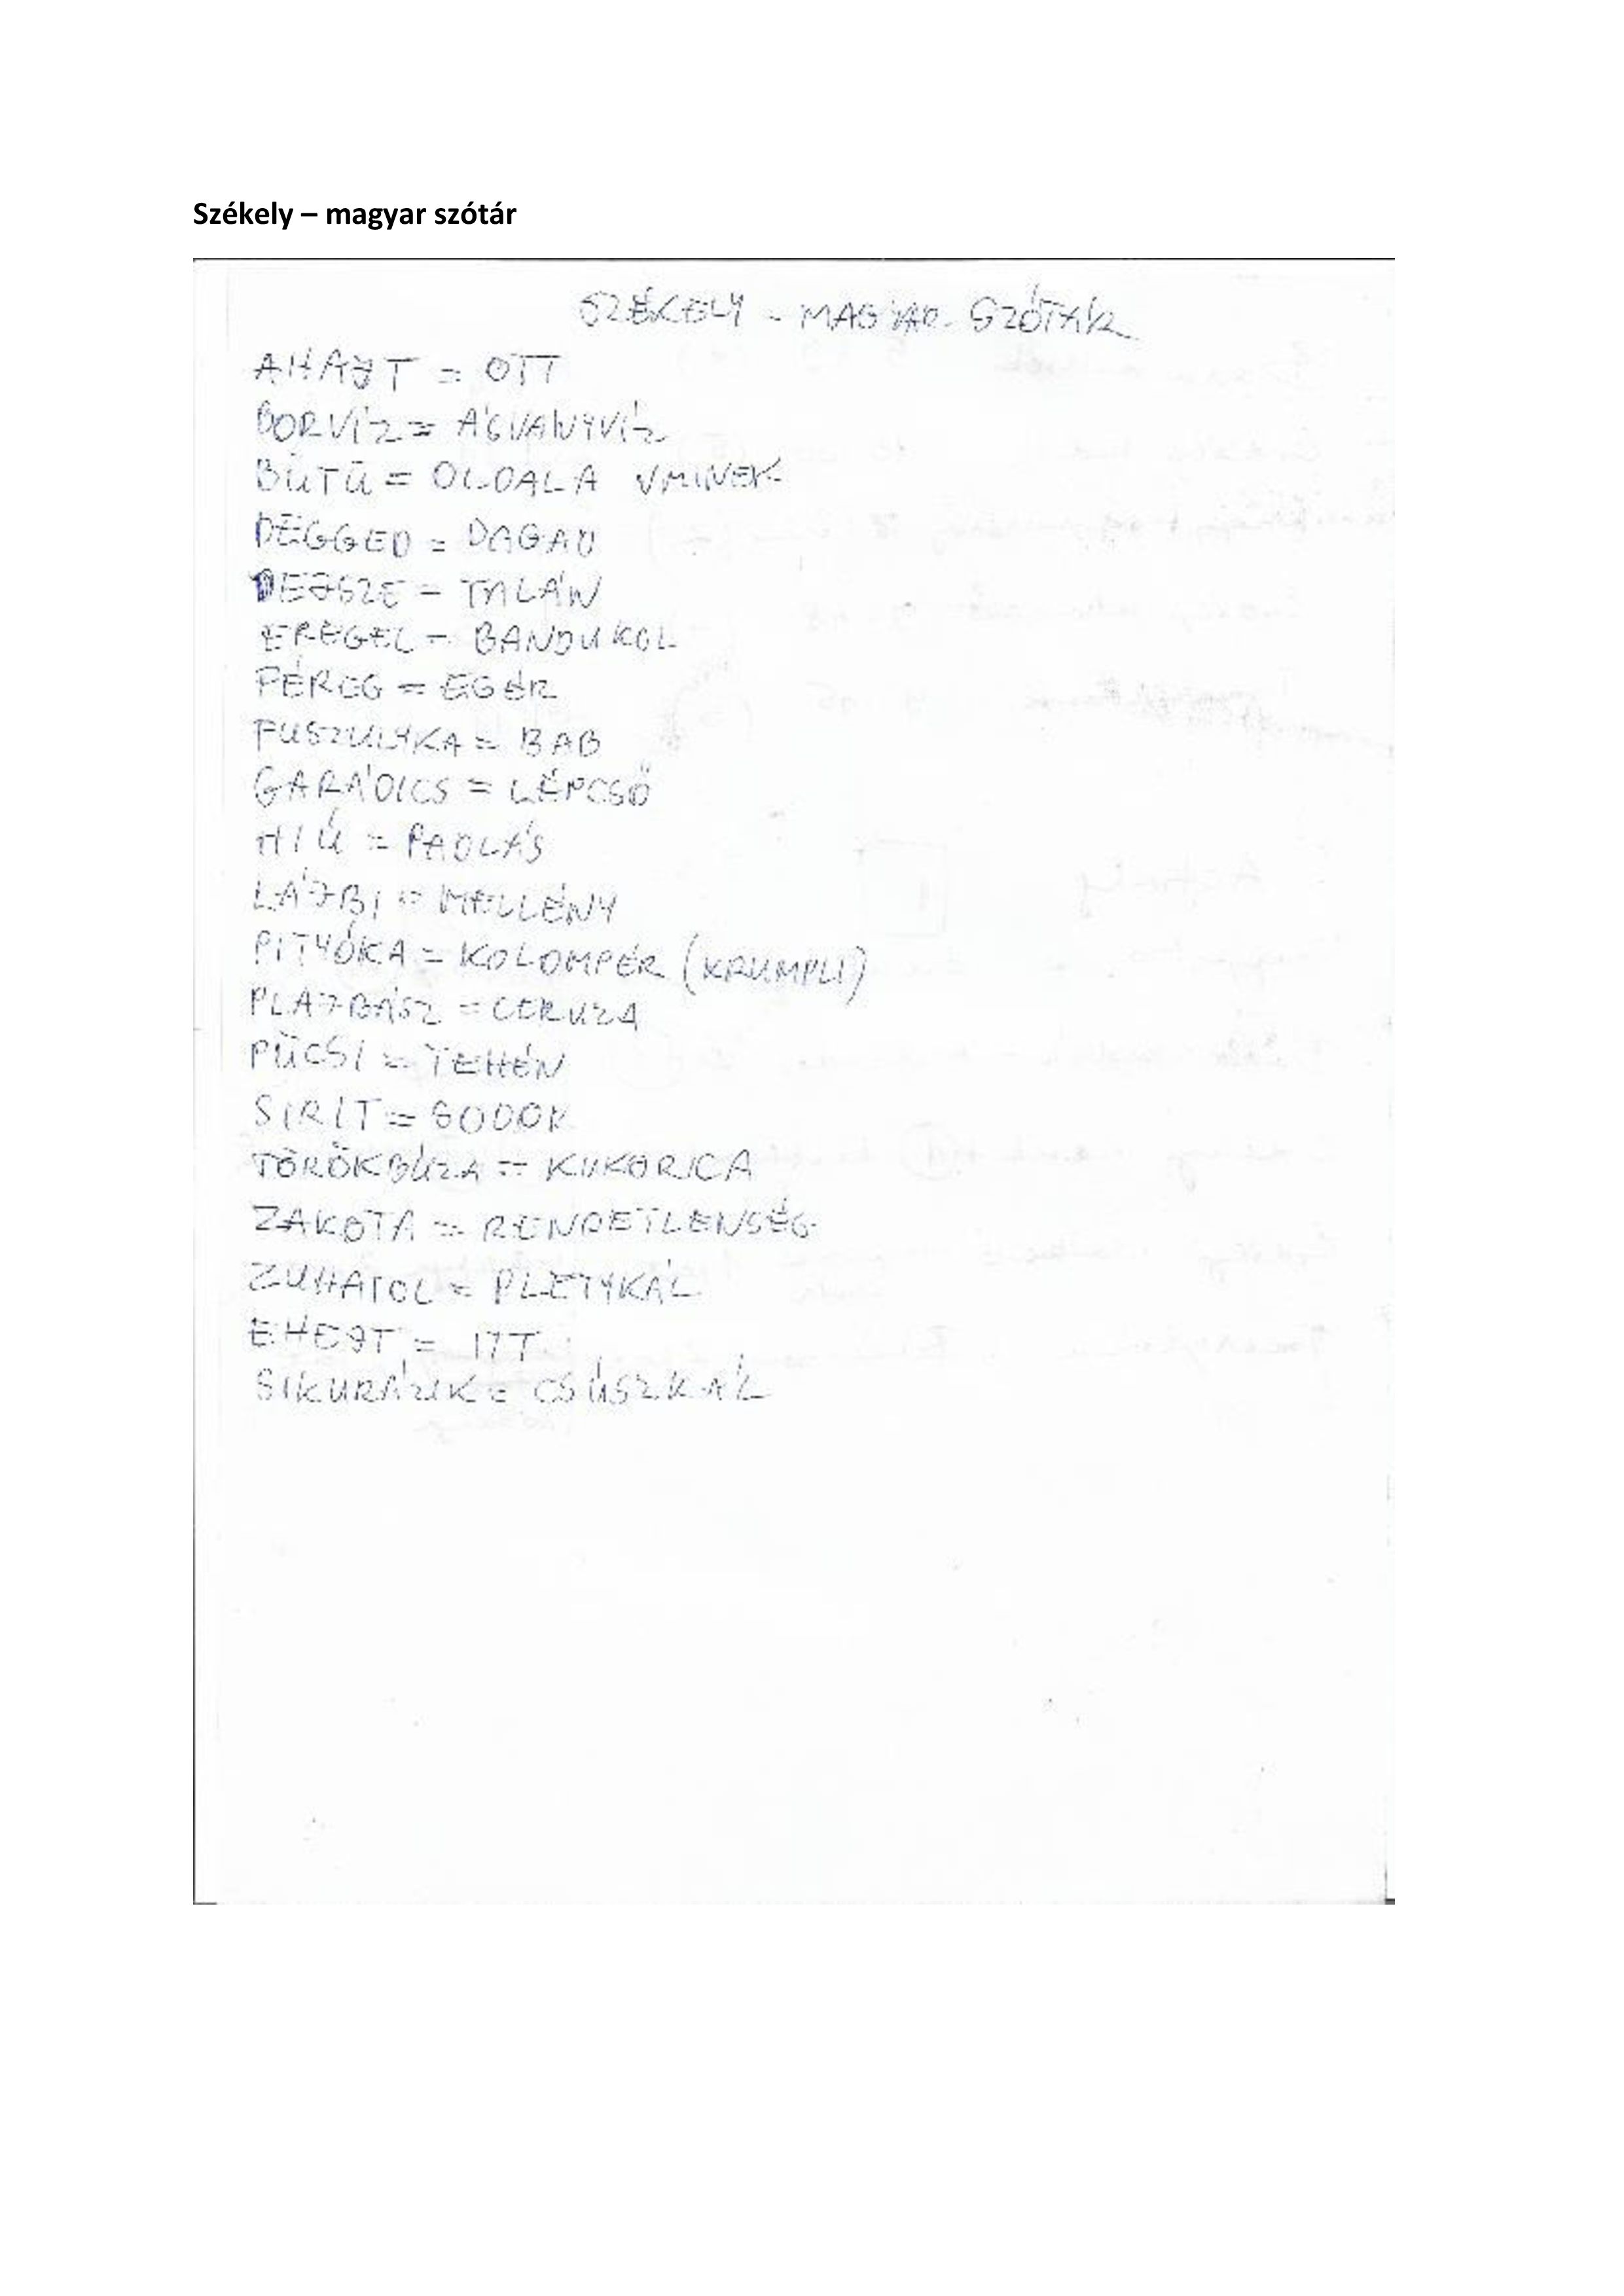 Székely – magyar szótár
SZÉKELY - MAGYAR SZÓTÁR
AHAJT = OTT
BORVÍZ = ÁSVÁNYVÍZ
BÜTÜ = OLDALA VMINEK
DEGGED = DAGAD
DEJSZE = TALÁN
EREGEL = BANDUKOL
FÉREG = EGÉR
FUSZULYKA = BAB
GARÁDICS = LÉPCSŐ
HIÚ = PADLÁS
LÁJBI = MELLÉNY
PITYÓKA = KOLOMPÉR (KRUMPLI)
PLAJBÁSZ = CERUZA
PÜCSI = TEHÉN
SIRÍT = SODOR
TÖRÖKBÚZA = KUKORICA
ZAKOTA = RENDETLENSÉG
ZUHATOL = PLETYKÁL
EHEJT = ITT
SIKURÁZIK = CSÚSZKÁL